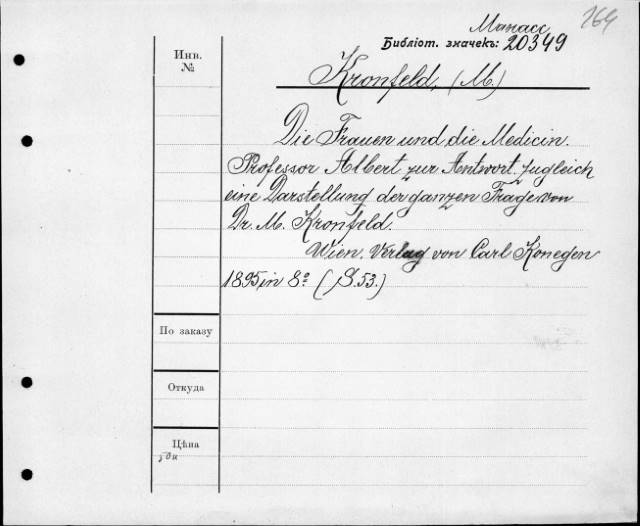 164
Манасс
Библіот. значекъ: 20349
Инв.
№
Kronfeld, (M.)
Die Frauen und die Medicin.
Professor Albert zur Antwort. Zugleich
eine Darstellung der ganzen Frage von
Dr. M. Kronfeld.
Wien. Verlag von Carl Konegen
1895 in 8º (S. 53.)
По заказу
Откуда
Цѣна